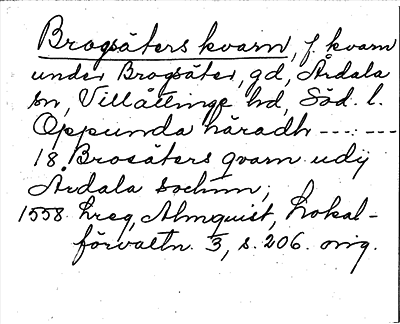 Brogsäters kvarn, f. kvarn
under Brogsäter, gd, Årdala
sn, Villåttinge hd, Söd. l.
Oppunda häradh --- ---
18 Brosäters qvarn udij
Årdala sochnn;
1558 hreg, Almquist, Lokal-
förvaltn. 3, s. 206. orig.